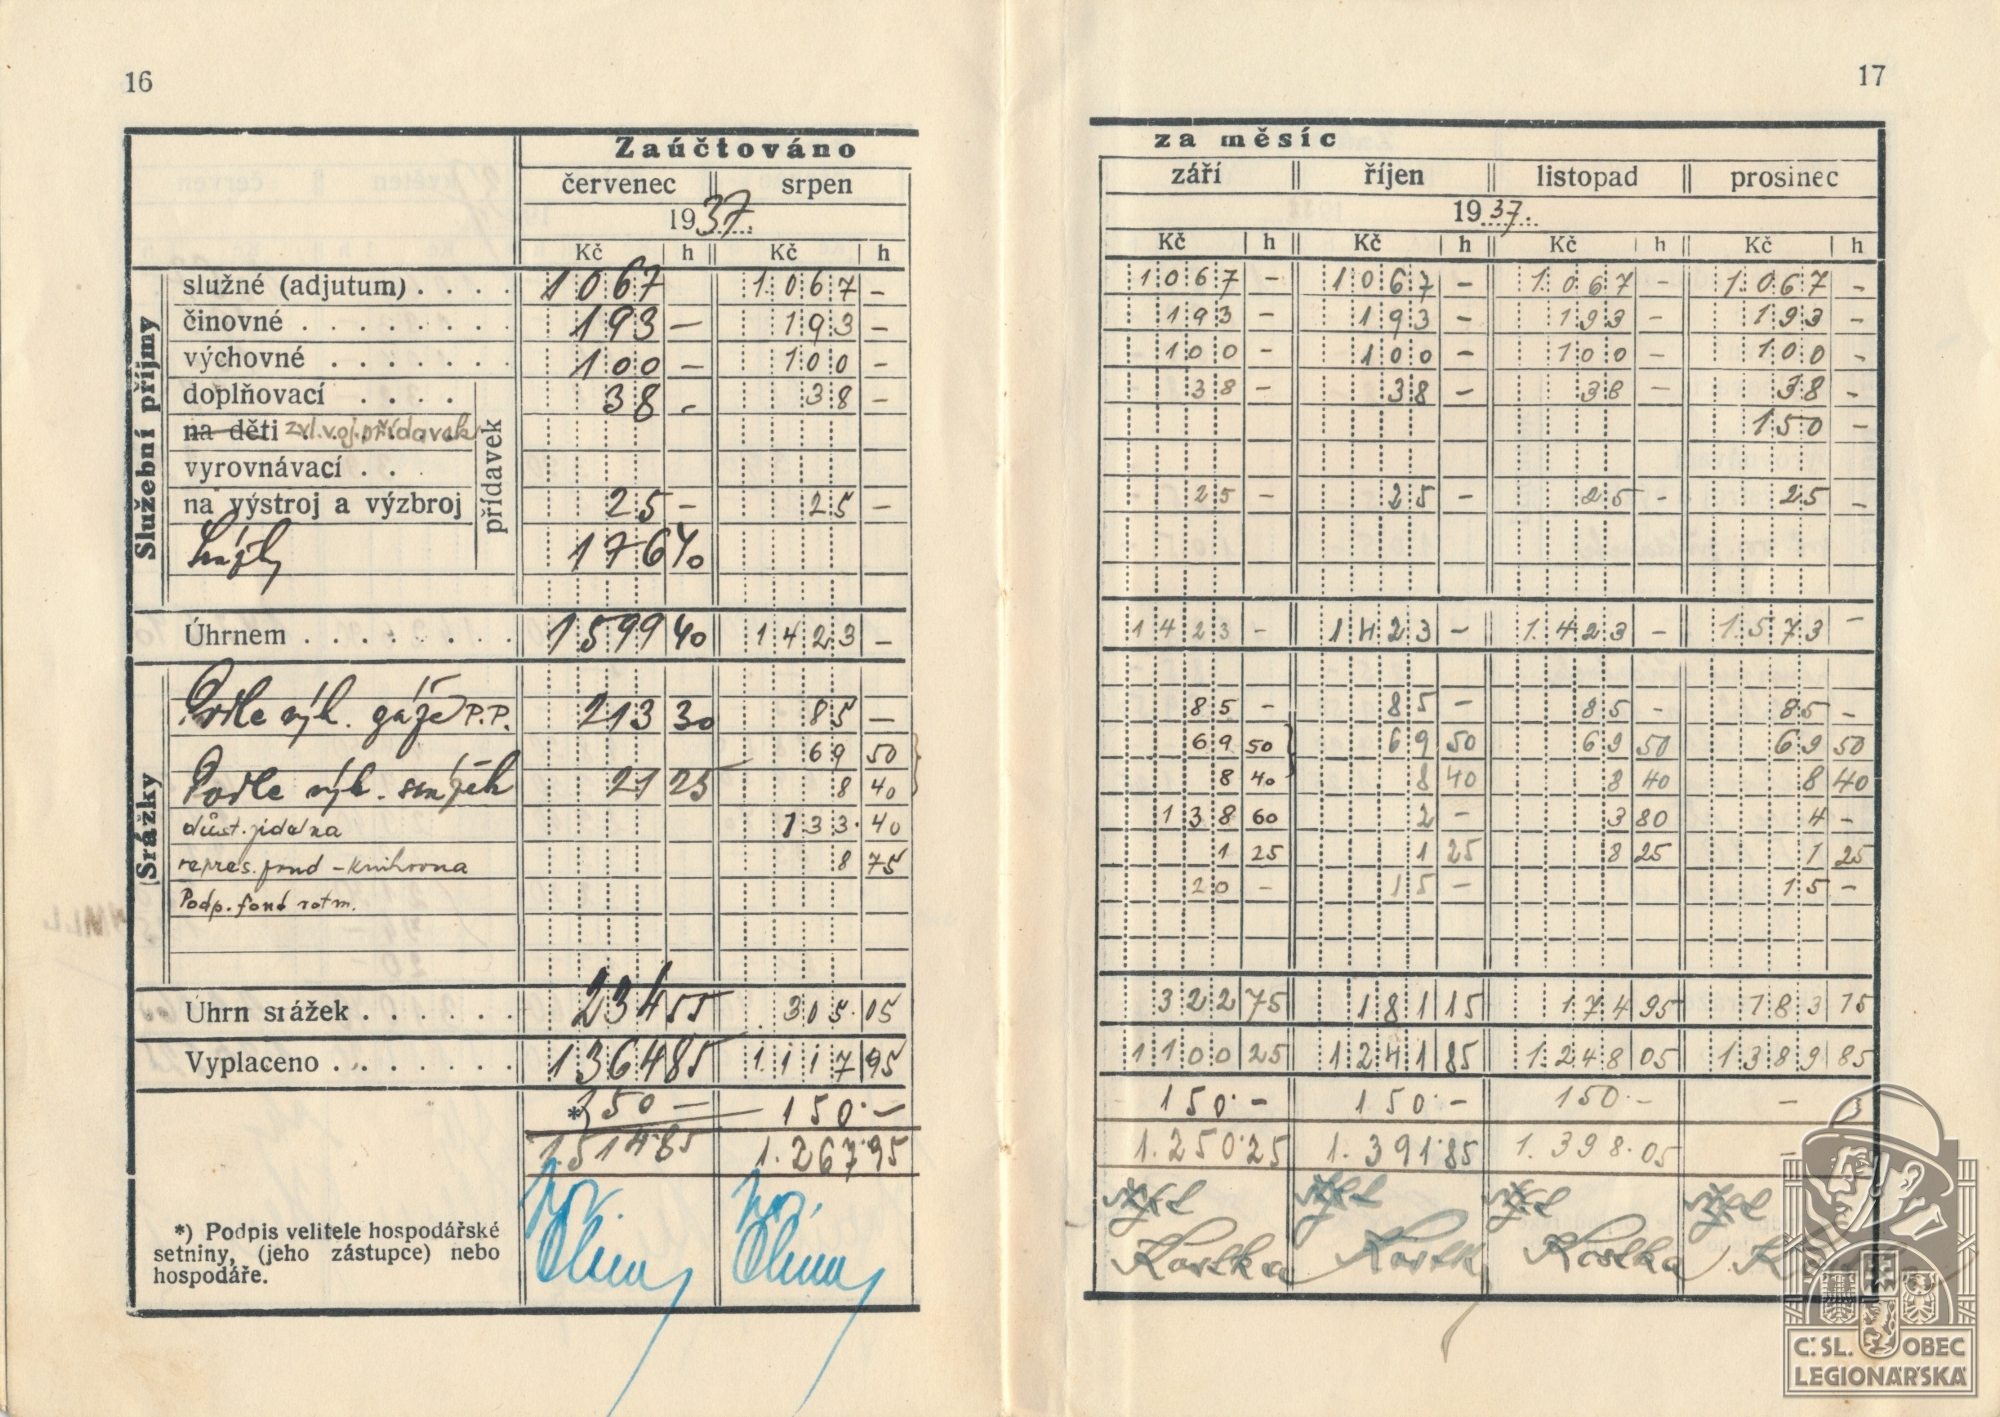 16
17
Zaúčtováno za měsíc
červenec srpen září říjen listopad prosinec
1937. 1937.
Kč h Kč h Kč h Kč h Kč h Kč h
Služební příjmy
služné (adjutum) . . . . 1067 1.067 – 1067 – 1067 – 1.067 – 1.067 –
činovné . . . . . . . . 193 – 193 – 193 – 193 – 193 – 193 –
výchovné . . . . . . . 100 – 100 – 100 – 100 – 100 – 100 –
přídavek
doplňovací . . . . 38 – 38 – 38 – 38 – 38 – 38 –
na děti zvl.voj.přídavek 150 –
vyrovnávací . .
na výstroj a výzbroj 25 – 25 – 25 – 25 – 25 – 25 –
176 40
Úhrnem . . . . . . . . 1599 40 1423 – 1423 – 1423 – 1.423 – 1.573 –
Srážky
Podle výk. gáže P.P. 213 30 85 – 85 – 85 – 85 – 85 –
69 50 69 50 69 50 69 50 69 50
Podle výk. 21 25 8 40 8 40 8 40 8 40 8 40
důst. jídelna 133 40 138 60 2 – 3 80 4 –
repres. fond – knihovna 8 75 1 25 1 25 8 25 1 25
Podp. fond rotm. 20 – 15 – 15 –
Úhrn srážek . . . . . . 234 55 305.05 322 75 181 15 174 95 183 15
Vyplaceno . . . . . . . 1364 85 1.117 95 1100 25 1241 85 1.248 05 1.389 85
*) 150 – 150.– 150.– 150.– 150.– –
1.514.85 1.267.95 1.250.25 1.391.85 1.398.05 –
*) Podpis velitele hospodářské
setniny, (jeho zástupce) nebo
hospodáře.
Kostka Kostka
Č.SL. OBEC
LEGIONÁŘSKÁ